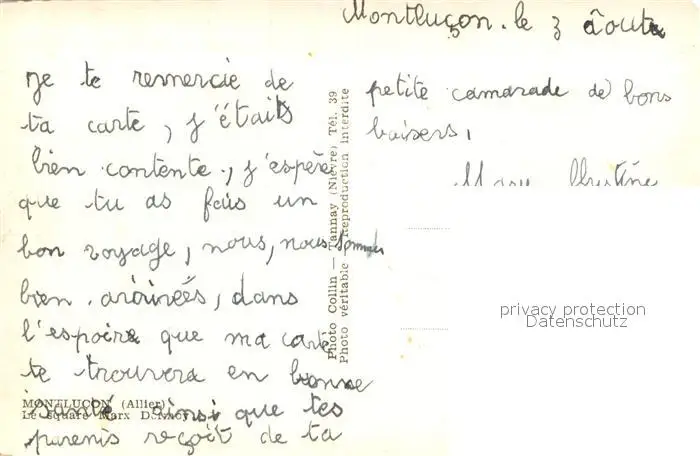 Montluçon. le 3 âoute
je te remercie de
ta carte, j'étaits
bien contente, j'espère
que tu as fais un
bon voyage, nous, nous sommes
bien arrinées, dans
l'espoire que ma carte
te trouvera en bonne
santé ainsi que tes
parenis reçoit de ta
petite camarade de bons
baisers,
Mary Christine
Photo Collin — Tannay (Nièvre) Tél. 39
Photo véritable — Reproduction interdite
MONTLUÇON (Allier)
Le square Marx Dormoy
privacy protection
Datenschutz